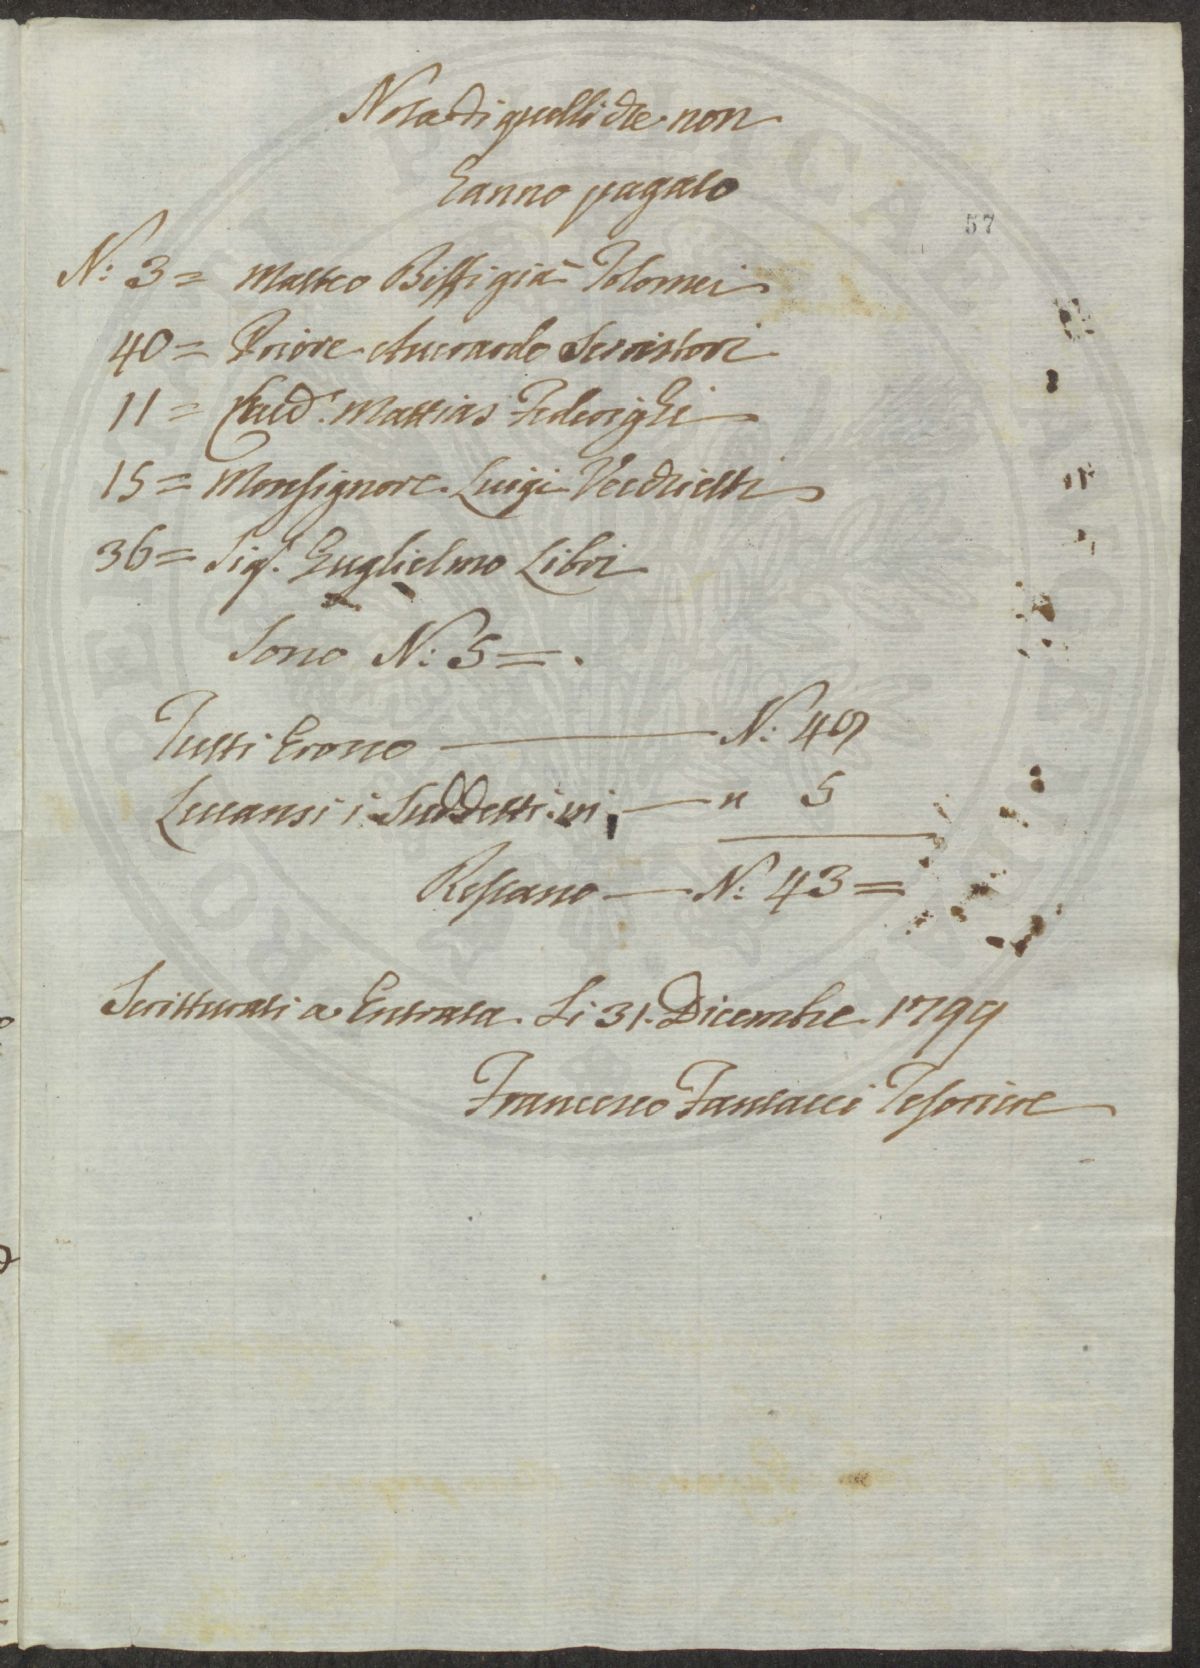 Nota di quelli che non
hanno pagato
57
N: 3 = Matteo Biffi già Tolomei
40 = Priore Averardo Serristori
11 = Mattias Federighi
15 = Monsignore Luigi
36 = Sig.r Guglielmo Libri
Sono N: 5 = .
Tutti Erono — N: 48
Levansi i Suddetti in — " 5
Restano — N: 43 =
Scritturati a Entrata. Li 31. Dicembre 1799
Francesco Fantacci Tesoriere